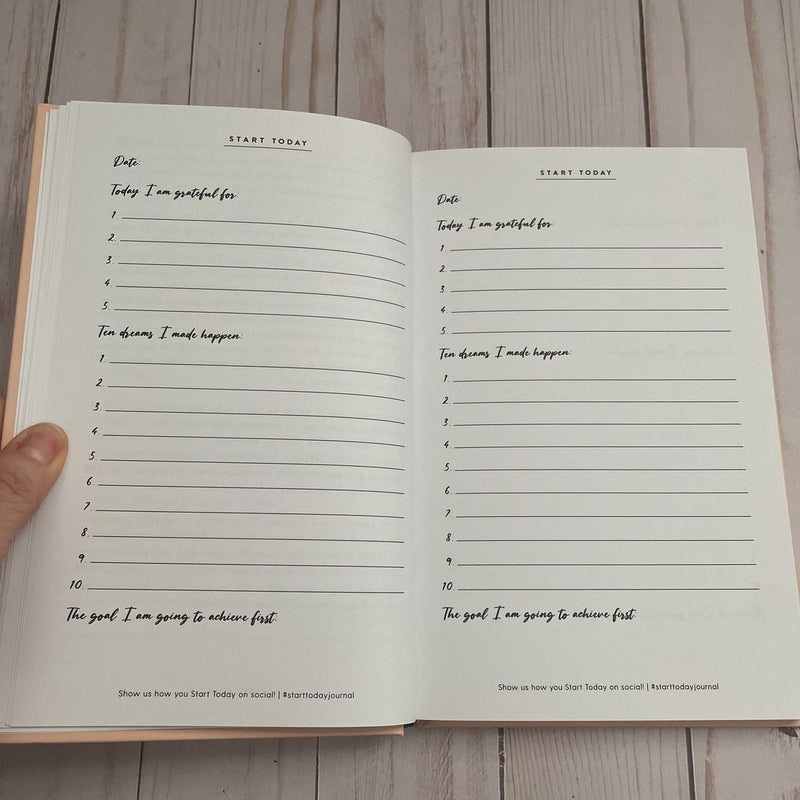 START TODAY
Date:
Today I am grateful for:
1.
2.
3.
4.
5.
Ten dreams I made happen:
1.
2.
3.
4.
5.
6.
7.
8.
9.
10.
The goal I am going to achieve first:
Show us how you Start Today on social! | #starttodayjournal
START TODAY
Date:
Today I am grateful for:
1.
2.
3.
4.
5.
Ten dreams I made happen:
1.
2.
3.
4.
5.
6.
7.
8.
9.
10.
The goal I am going to achieve first:
Show us how you Start Today on social! | #starttodayjournal